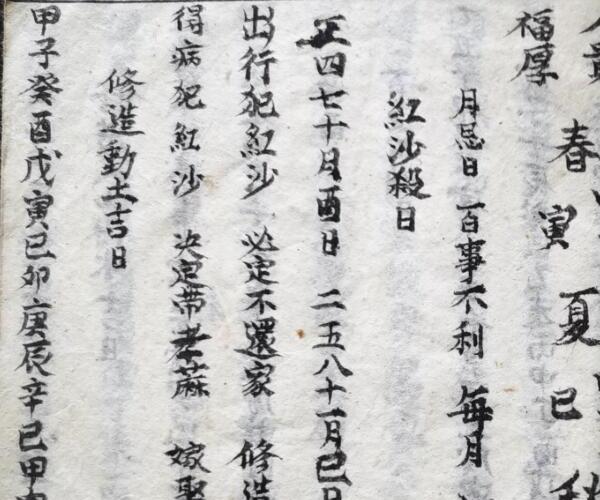 春 夏
寅 巳
福厚
月忌日 百事不利 每月
紅沙殺日
正四七十月酉日 二五八十一月巳日
出行犯紅沙 必定不還家 修造
得病犯紅沙 决定帶孝蔴 嫁娶
修造動土吉日
甲子癸酉戊寅己卯庚辰辛巳甲申